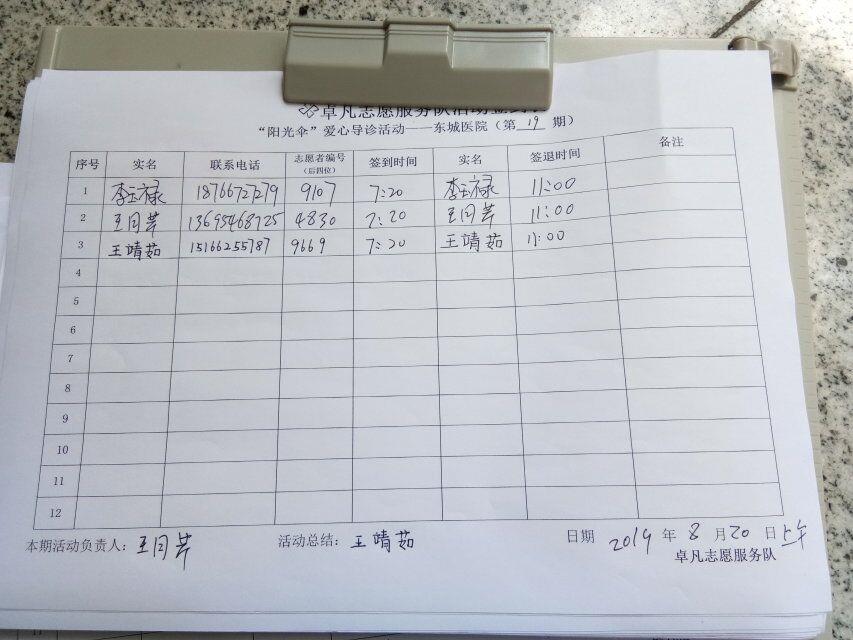 卓凡志愿服务队活动签到
“阳光伞”爱心导诊活动——东城医院（第 19 期）
序号 实名 联系电话 志愿者编号（后四位） 签到时间 实名 签退时间 备注
1 李玉禄 18766727279 9107 7:20 李玉禄 11:00
2 王同芹 13695468725 4830 7:20 王同芹 11:00
3 王靖茹 15166255787 9669 7:20 王靖茹 11:00
4
5
6
7
8
9
10
11
12
本期活动负责人：王同芹 活动总结：王靖茹 日期 2019 年 8 月 20 日上午
卓凡志愿服务队